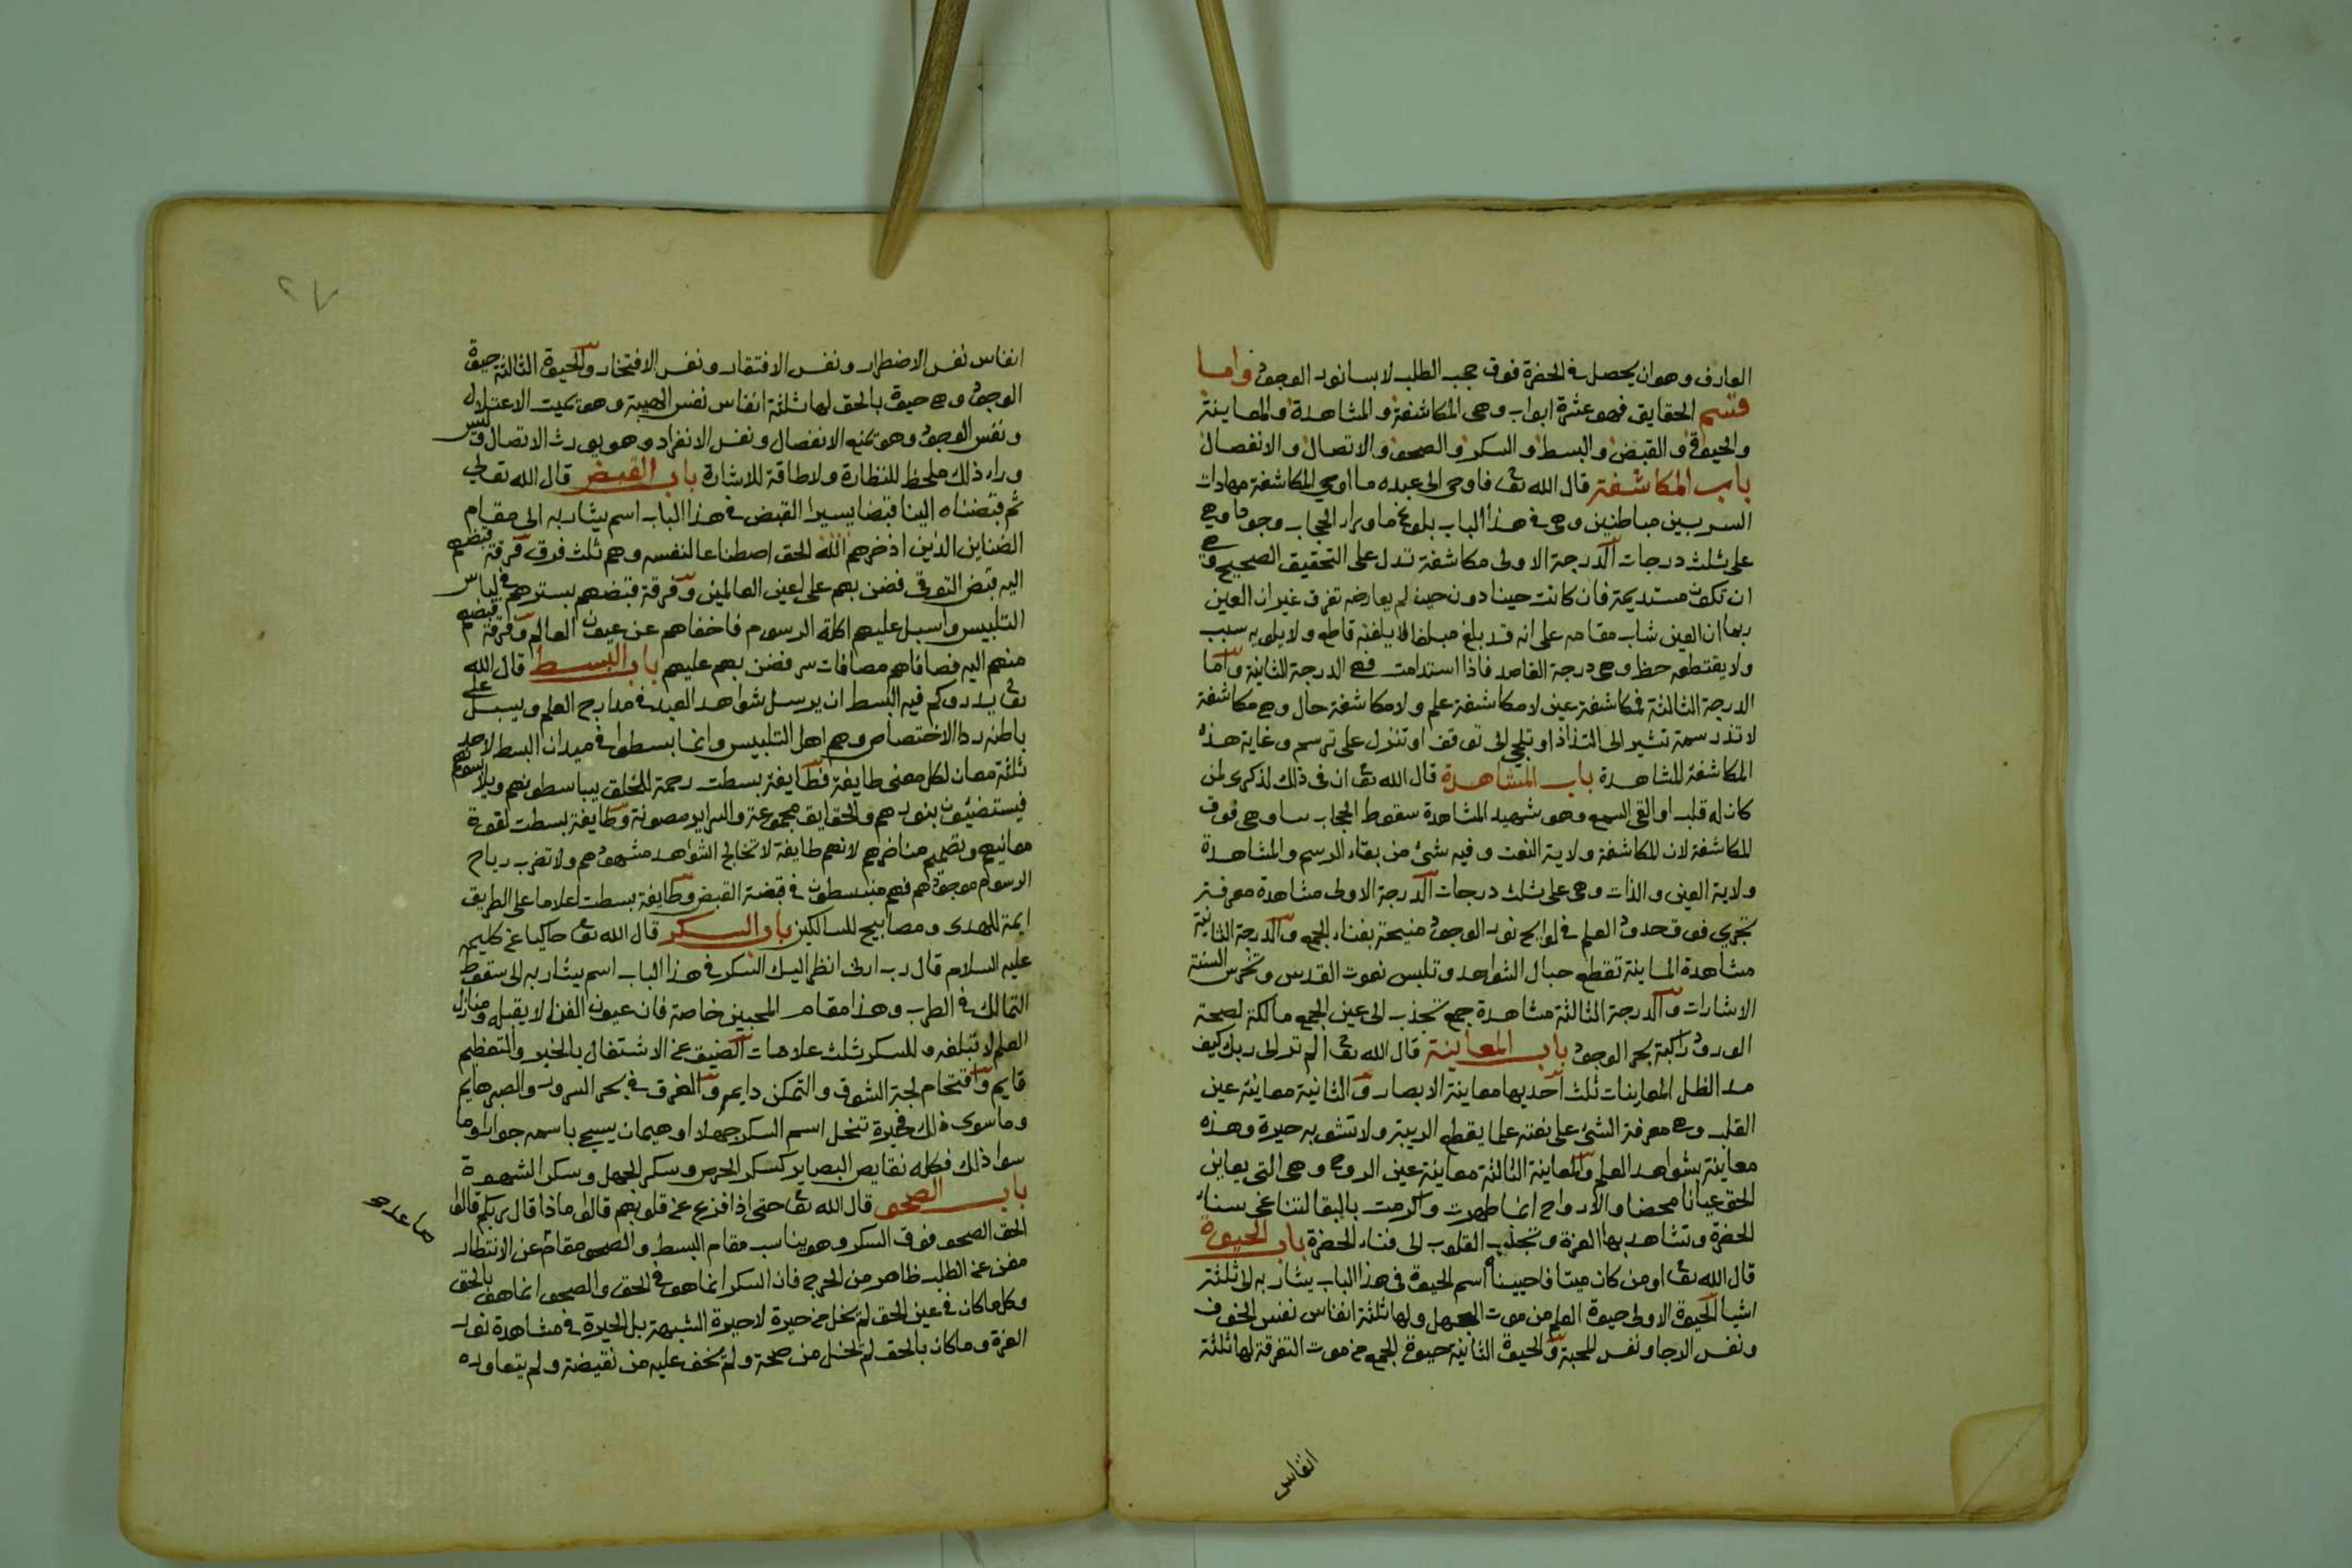 العارف وهو ان يحصل في الحضرة فوق حجب الطلب لابسا نور الوجود واما
قسم الحقايق فهو عشرة ابواب وهي المكاشفة والمشاهدة والمعاينة
والحيوة والقبض والبسط والسكر والصحو والاتصال والانفصال
باب المكاشفة قال الله تعا فاوحى الى عبده ما اوحى المكاشفة مهادات
السر بين مباطنين وهي في هذا الباب بلوغ ما وراء الحجاب وجودا وهي
على ثلث درجات الدرجة الاولى مكاشفة تدل على التحقيق الصحيح وهي
ان تكون مستديمة فان كانت حينا دون حين لم يعارضه تفرق غير ان العين
ربما ان الغين شاب مقامه على انه قد بلغ مبلغا لا يلفته قاطع ولا يلويه سبب
ولا يقتطعه حظ وهي درجة القاصد فاذا استدامت فهي الدرجة الثانية واما
الدرجة الثالثة فمكاشفة عين لا مكاشفة علم ولا مكاشفة حال وهي مكاشفة
لا تذر سمة تشير الى التذاذ او تلجي الى توقف او تنزل على ترسم وغاية هذه
المكاشفة المشاهدة باب المشاهدة قال الله تعا ان في ذلك لذكرى لمن
كان له قلب او القى السمع وهو شهيد المشاهدة سقوط الحجاب بتا وهي فوق
المكاشفة لان المكاشفة ولاية النعت وفيه شئ من بقاء الرسم والمشاهدة
ولاية العين والذات وهي على ثلث درجات الدرجة الاولى مشاهدة معرفة
تجري فوق حدود العلم في لوايح نور الوجود منيخة بفناء الجمع والدرجة الثانية
مشاهدة المعاينة تقطع حبال الشواهد وتلبس نعوت القدس وتخرس السنة
الاشارات والدرجة الثالثة مشاهدة جمع تجذب الى عين الجمع مالكة لصحة
الورود راكبة بحر الوجود باب المعاينة قال الله تعا الم تر الى ربك كيف
مد الظل المعاينات ثلث احديها معاينة الابصار والثانية معاينة عين
القلب وهي معرفة الشئ على نعته علما يقطع الريبة ولا تشوبه حيرة وهذه
معاينة بشواهد العلم والمعاينة الثالثة معاينة عين الروح وهي التي يعاين
الحق عيانا محضا والارواح انما طهرت واكرمت بالبقا لتناغي سناء
الحضرة وتشاهد بهاء العزة وتجذب القلوب الى فناء الحضرة باب الحيوة
قال الله تعا اومن كان ميتا فاحييناه اسم الحيوة في هذا الباب يشار به الى ثلثة
اشيا الحيوة الاولى حيوة العلم من موت الجهل ولها ثلثة انفاس نفس الخوف
ونفس الرجا ونفس المحبة والحيوة الثانية حيوة الجمع من موت التفرقة لها ثلثة
انفاس
٢٧
انفاس نفس الاضطرار ونفس الافتقار ونفس الافتخار والحيوة الثالثة حيوة
الوجود وهي حيوة بالحق لها ثلثة انفاس نفس الهيبة وهو يميت الاعتلال
ونفس الوجود وهو يمنع الانفصال ونفس الانفراد وهو يورث الاتصال وليس
وراء ذلك ملحظ للنظارة ولا طاقة للاشارة باب القبض قال الله تعالى
ثم قبضناه الينا قبضا يسيرا القبض في هذا الباب اسم يشار به الى مقام
الضناين الذين اذخرهم الله الحق اصطناعا لنفسه وهم ثلث فرق فرقة قبضهم
اليه قبض التوقي فضن بهم على اعين العالمين وفرقة قبضهم بسترهم في لباس
التلبيس واسبل عليهم اكلة الرسوم فاخفاهم عن عيون العالم وفرقة قبضهم
منهم اليه فصافاهم مصافات سر فضن بهم عليهم باب البسط قال الله
تعا يذروكم فيه البسط ان يرسل شواهد العبد في مدارج العلم ويسبل على
باطنه ردا الاختصاص وهم اهل التلبيس وانما بسطوا في ميدان البسط لاحد
ثلثة معان لكل معنى طايفة فطايفة بسطت رحمة للخلق يباسطونهم ويلابسونهم
فيستضيئون بنورهم والحقايق مجموعة والسراير مصونة وطايفة بسطت لقوة
معانيهم وتصميم مناظرهم لانهم طايفة لا تخالج الشواهد مشهودهم ولا تضرب رياح
الرسوم موجودهم فهم منبسطون في قبضة القبض وطايفة بسطت اعلاما على الطريق
ايمة للهدى ومصابيح للسالكين باب السكر قال الله تعا حاكيا عن كليمه
عليه السلام قال رب ارني انظر اليك السكر في هذا الباب اسم يشار به الى سقوط
التمالك في الطرب وهذا مقام المحبين خاصة فان عيون الفنا لا يقبله ومنازل
العلم لا تبلغه وللسكر ثلث علامات الضيق عن الاشتغال بالخبر والتعظيم
قايم واقتحام لجة الشوق والتمكن دايم والغرق في بحر السرور والصبر هايم
وما سوى ذلك فحيرة تنحل اسم السكر جهلا او هيمان يسمى باسمه جورا وما
سوا ذلك فكله نقايص البصاير كسكر الحرص وسكر الجهل وسكر الشهوة
باب الصحو قال الله تعا حتى اذا فزع عن قلوبهم قالوا ماذا قال ربكم قالوا
الحق الصحو فوق السكر وهو يناسب مقام البسط والصحو مقام عن الانتظار
مغن عن الطلب ظاهر من الحرج فان السكر انما هو في الحق والصحو انما هو بالحق
وكل ما كان في عين الحق لم يخل من حيرة لا حيرة الشبهة بل الحيرة في مشاهدة نور
العزة وما كان بالحق لم يخل من صحة ولم يخف عليه من نقيضة ولم يتعاوره